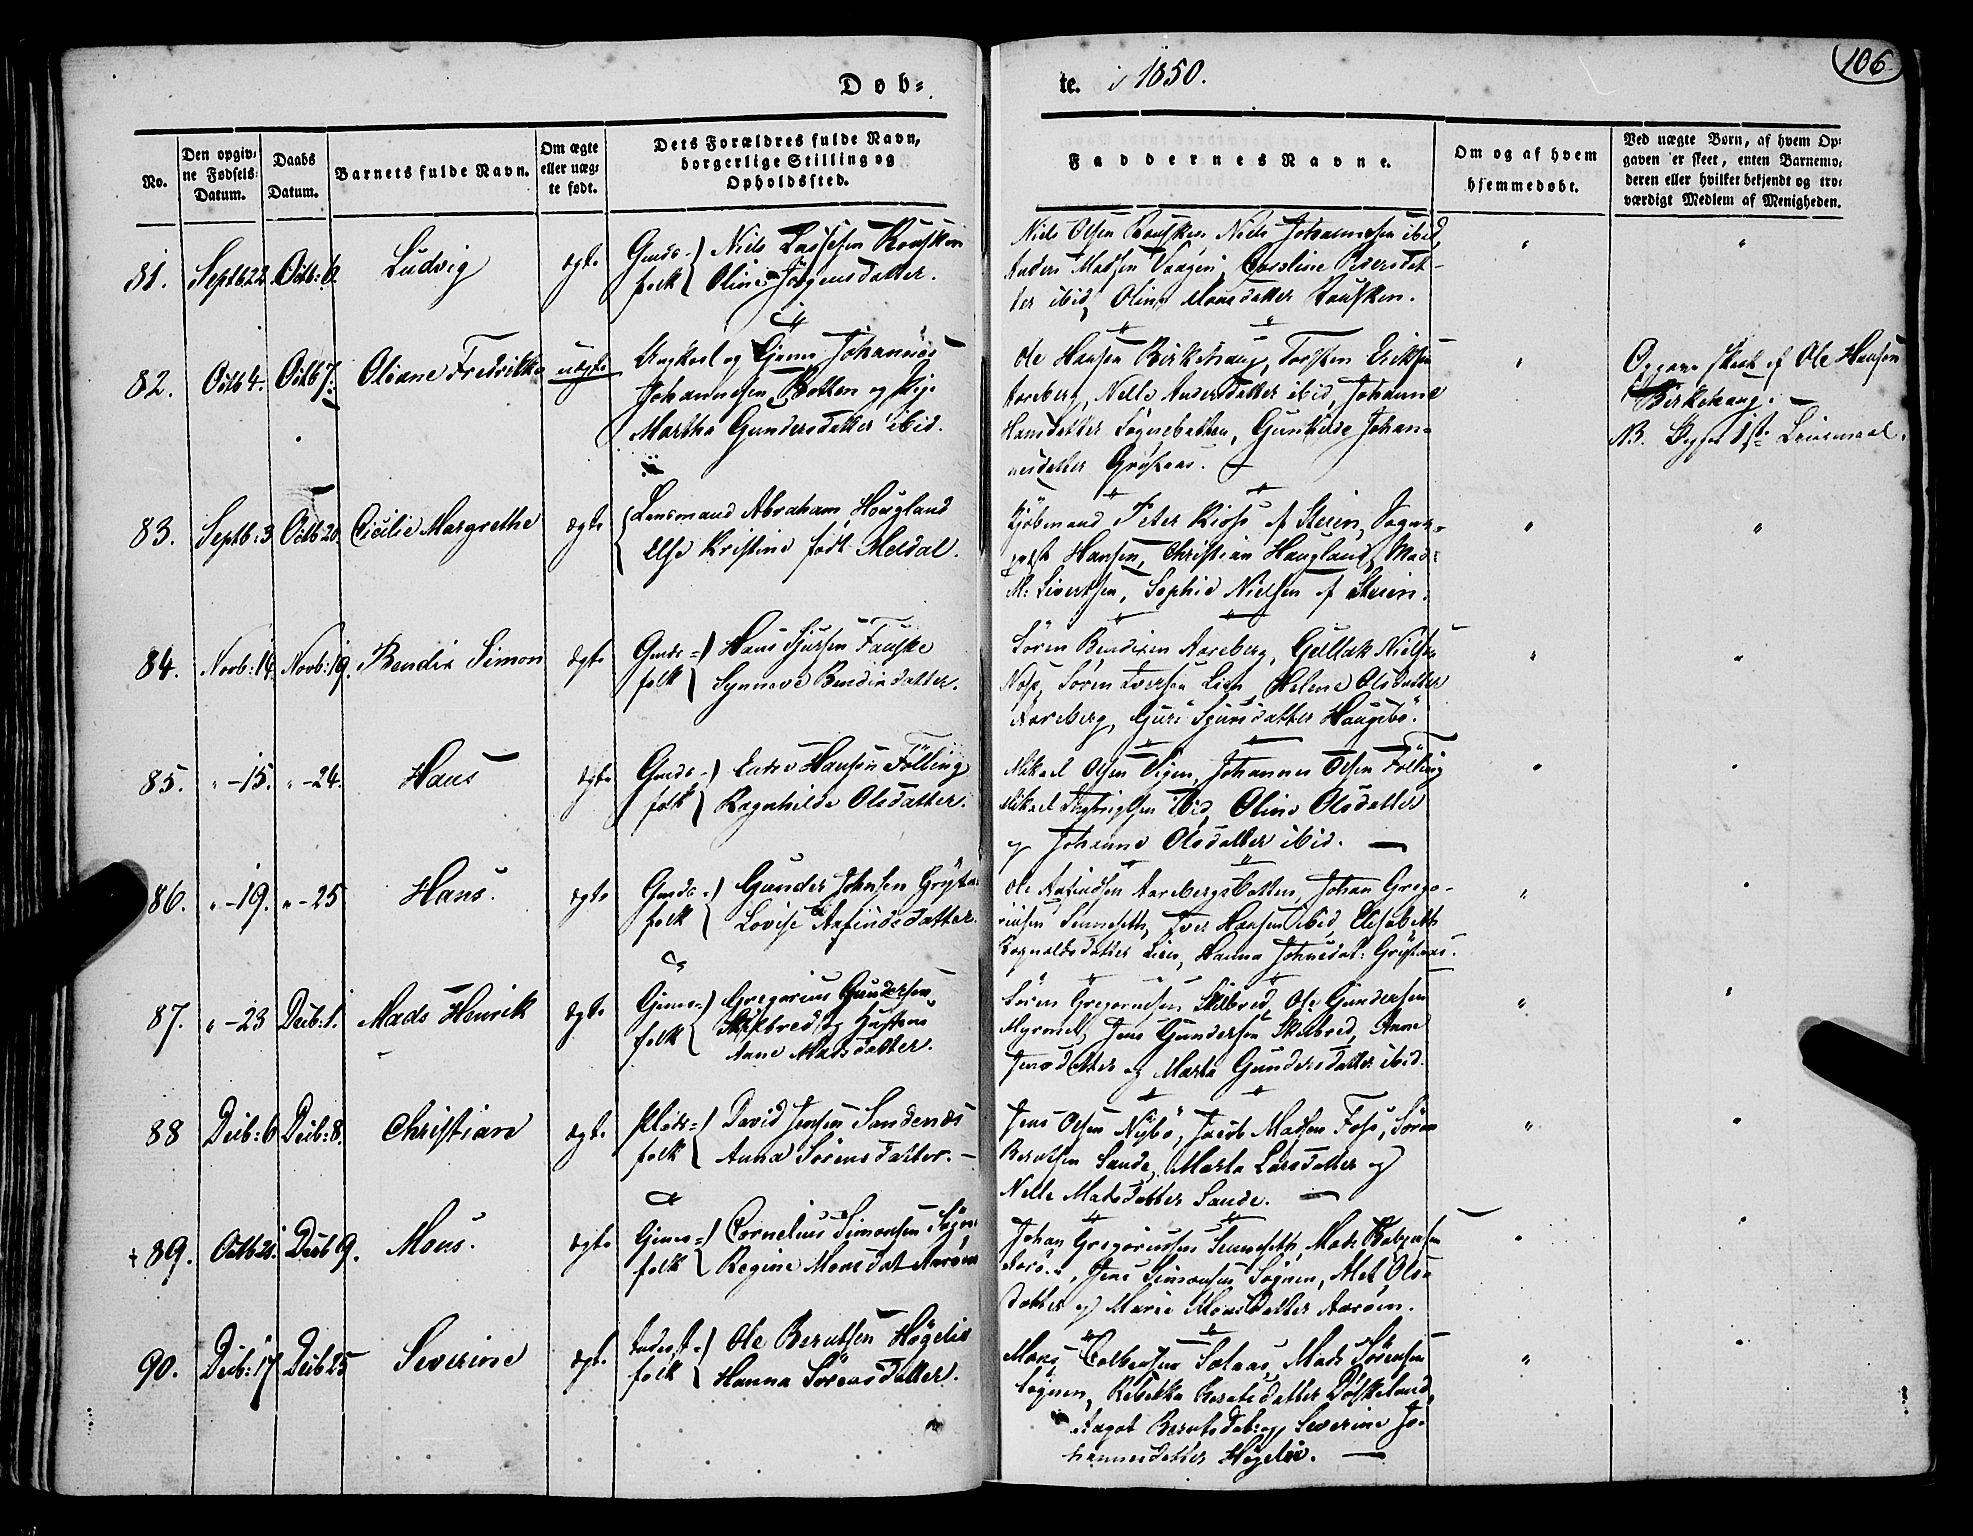 106
Døb=
te. i 1850.
No.
Den opgiv=
ne Fødsels=
Datum.
Daabs
Datum.
Barnets fulde Navn.
Om ægte
eller uæg=
te født.
Dets Forældres fulde Navn,
borgerlige Stilling og
Opholdssted.
Faddernes Navne.
Om og af hvem
hjemmedøbt.
Ved uægte Børn, af hvem Op=
gaven er skeet, enten Barnemo=
deren eller hvilket bekjendt og tro=
værdigt Medlem af Menigheden.
81. Septb 22. Octb: 6. Ludvig ægte Gmds= folk
Niels Lassesen
Oline Jörgensdatter.
Niels Olsen Niels Johannesen ibid,
Anders Madsen Vaagen, Caroline Pedersdat=
ter ibid, Oline Monsdatter
82. Octb 4. Octb 7. Oliane Fredrikke uægte
Ungkarl og Johannes
Johannesen Botten og Pige
Martha Gundersdatter ibid.
Ole Hansen Birkehaug, Torsten Eriksen
Aareberg, Nelle Andersdatter ibid, Johanne
Hansdatter Sognebotten, Gunhilde Johan=
nesdatter
af Ole Hansen
Birkehaug. —
NB. 1ste Leiermaal.
83. Septb: 3 Octb 20. Cicilie Margrethe ægte
Lensmand Abraham Hougland
Else Kristine født Meldal.
Kjøbmand Peter af Steien, Sogne=
præst Hansen, Christian Haugland, Mad:
M: Sivertsen, Sophie Nielsen af Steien.
84. Novb: 14. Novb: 19. Bendix Simon ægte Gmds= folk
Hans Sjursen Fauske
Synneve Bendixdatter.
Søren Bendixen Aareberg, Gullak Nielsen
Søren Iversen Lien, Helene Olsdatter
Aareberg, Guri Sjursdatter Haugsbö.
85. " -15. " -24. Hans ægte Gmds= folk
Hansen Fölling
Ragnhilde Olsdatter.
Mikael Olsen Johannes Olsen Fölling
Mikael ibid, Oline Olsdatter
og Johanne Olsdatter ibid. —
86. " -19. " -25 Hans. ægte Gmds= folk
Gunder Johnsen
Lovise Arfindsdatter.
Ole Arfindsen Aarebergsbotten, Johan Grego=
riusen Senneseth, Iver Hansen ibid, Elisabeth
Ragnaldsdatter Lien, Hanna Johnsdat:
87. " -23 Decb: 1. Mads Henrik ægte Gjmds= folk
Gregorius Gundersen
Skilbred og Hustru
Anne Madsdatter.
Søren Gregoriusen Skilbred, Ole Gundersen
Myrmel, Jens Gundersen Skilbred, Anne
Jensdatter og Marta Gundersdatter ibid.
88 Decb: 6 Decb: 8. Christian ægte Plads= folk
David Jensen Sandenæs
Anna Sörensdatter. —
Jens Olsen Nybö, Jacob Madsen Foss, Søren
Berntsen Sande, Marta Larsdatter og
Nelle Madsdatter Sande. —
+ 89. Octb 21. Decb 9. Mons. ægte Gjmds= folk
Cornelius Simonsen
Regine Monsdat Aaröen
Johan Gregoriussen Senneseth, Mads
Jens Simonsen Sögnen, Alet Ols=
datter og Marie Monsdatter Aaröen.
90. Decb: 17 Decb 25 Severine ægte Inderst= folk
Ole Berntsen Högelie
Hanna Sörensdatter.
Mons Colbensen Mads Sörensen
Sögnen, Rebekka Berntsdatter
Aagot Berntsdat: og Severine Jo=
hannesdatter Högelie. —